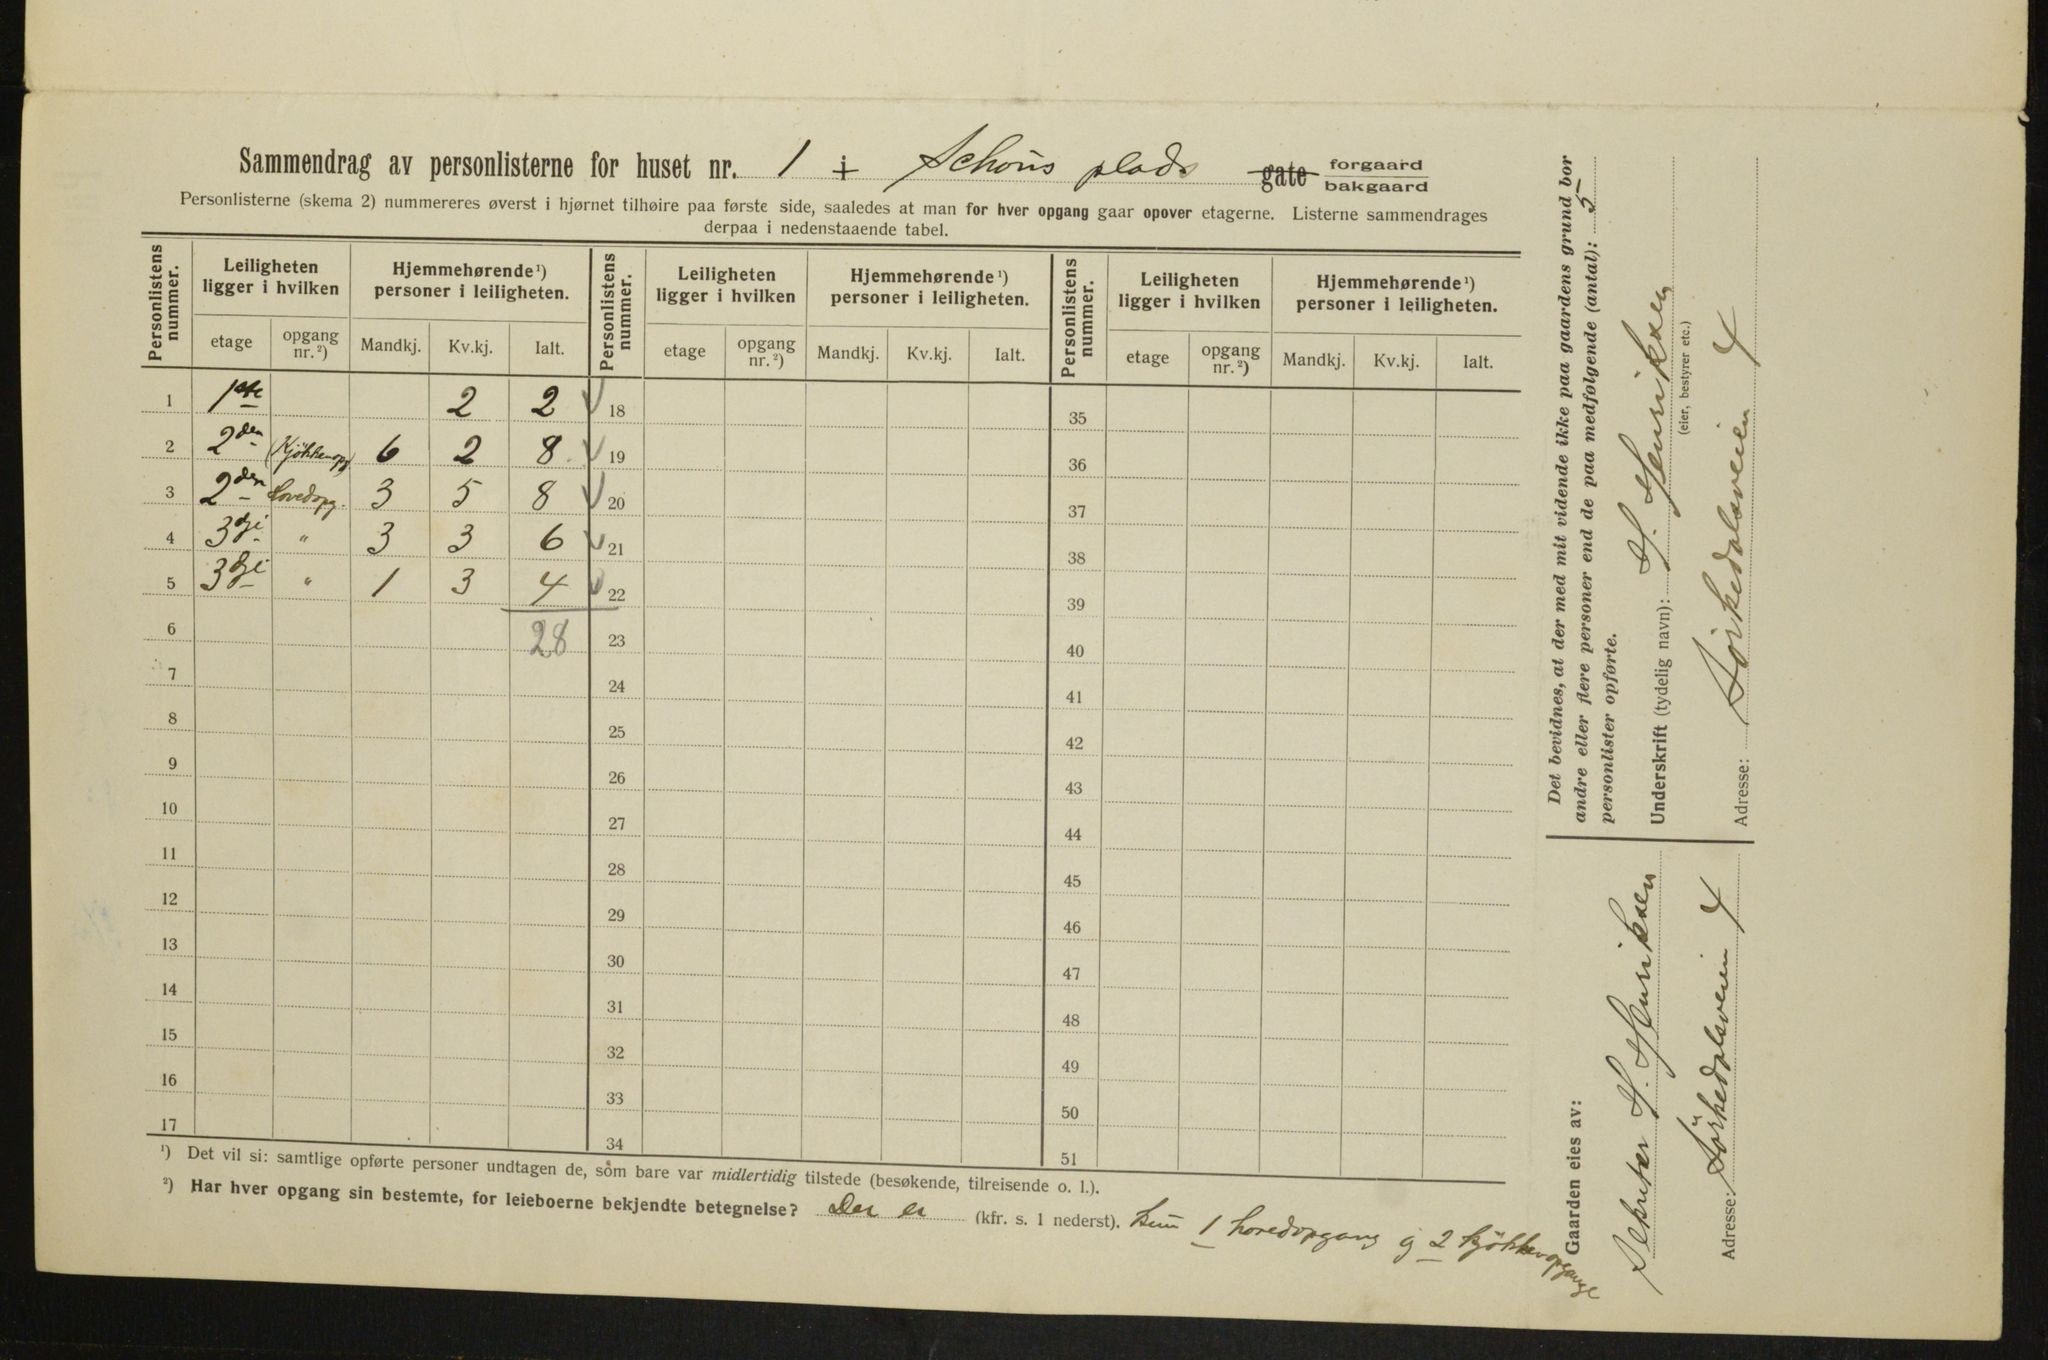 Sammendrag av personlisterne for huset nr. 1 i Schous plads gate forgaard
bakgaard
Personlisterne (skema 2) nummereres øverst i hjørnet tilhøire paa første side, saaledes at man for hver opgang gaar opover etagerne. Listerne sammendrages
derpaa i nedenstaaende tabel.
Personlistens nummer. Leiligheten ligger i hvilken Hjemmehørende¹) personer i leiligheten. Personlistens nummer. Leiligheten ligger i hvilken Hjemmehørende¹) personer i leiligheten. Personlistens nummer. Leiligheten ligger i hvilken Hjemmehørende¹) personer i leiligheten.
etage opgang nr.²) Mandkj. Kv.kj. Ialt. etage opgang nr.²) Mandkj. Kv.kj. Ialt. etage opgang nr.²) Mandkj. Kv.kj. Ialt.
1 1ste 2 2 18 35
2 2den (Kjökkenopg) 6 2 8 19 36
3 2den Hovedopg. 3 5 8 20 37
4 3dje " 3 3 6 21 38
5 3dje " 1 3 4 22 39
6 28 23 40
7 24 41
8 25 42
9 26 43
10 27 44
11 28 45
12 29 46
13 30 47
14 31 48
15 32 49
16 33 50
17 34 51
¹) Det vil si: samtlige opførte personer undtagen de, som bare var midlertidig tilstede (besøkende, tilreisende o. l.).
²) Har hver opgang sin bestemte, for leieboerne bekjendte betegnelse? Der er (kfr. s. 1 nederst). kun 1 hovedopgang og 2 kjökkenopgange
Det bevidnes, at der med mit vidende ikke paa gaardens grund bor
andre eller flere personer end de paa medfølgende (antal): 5
personlister opførte.
Underskrift (tydelig navn): H. Henriksen
(eier, bestyrer etc.)
Adresse: Sörkedalsveien 4
Gaarden eies av:
Sekretær H. Henriksen
Adresse: Sörkedalsveien 4